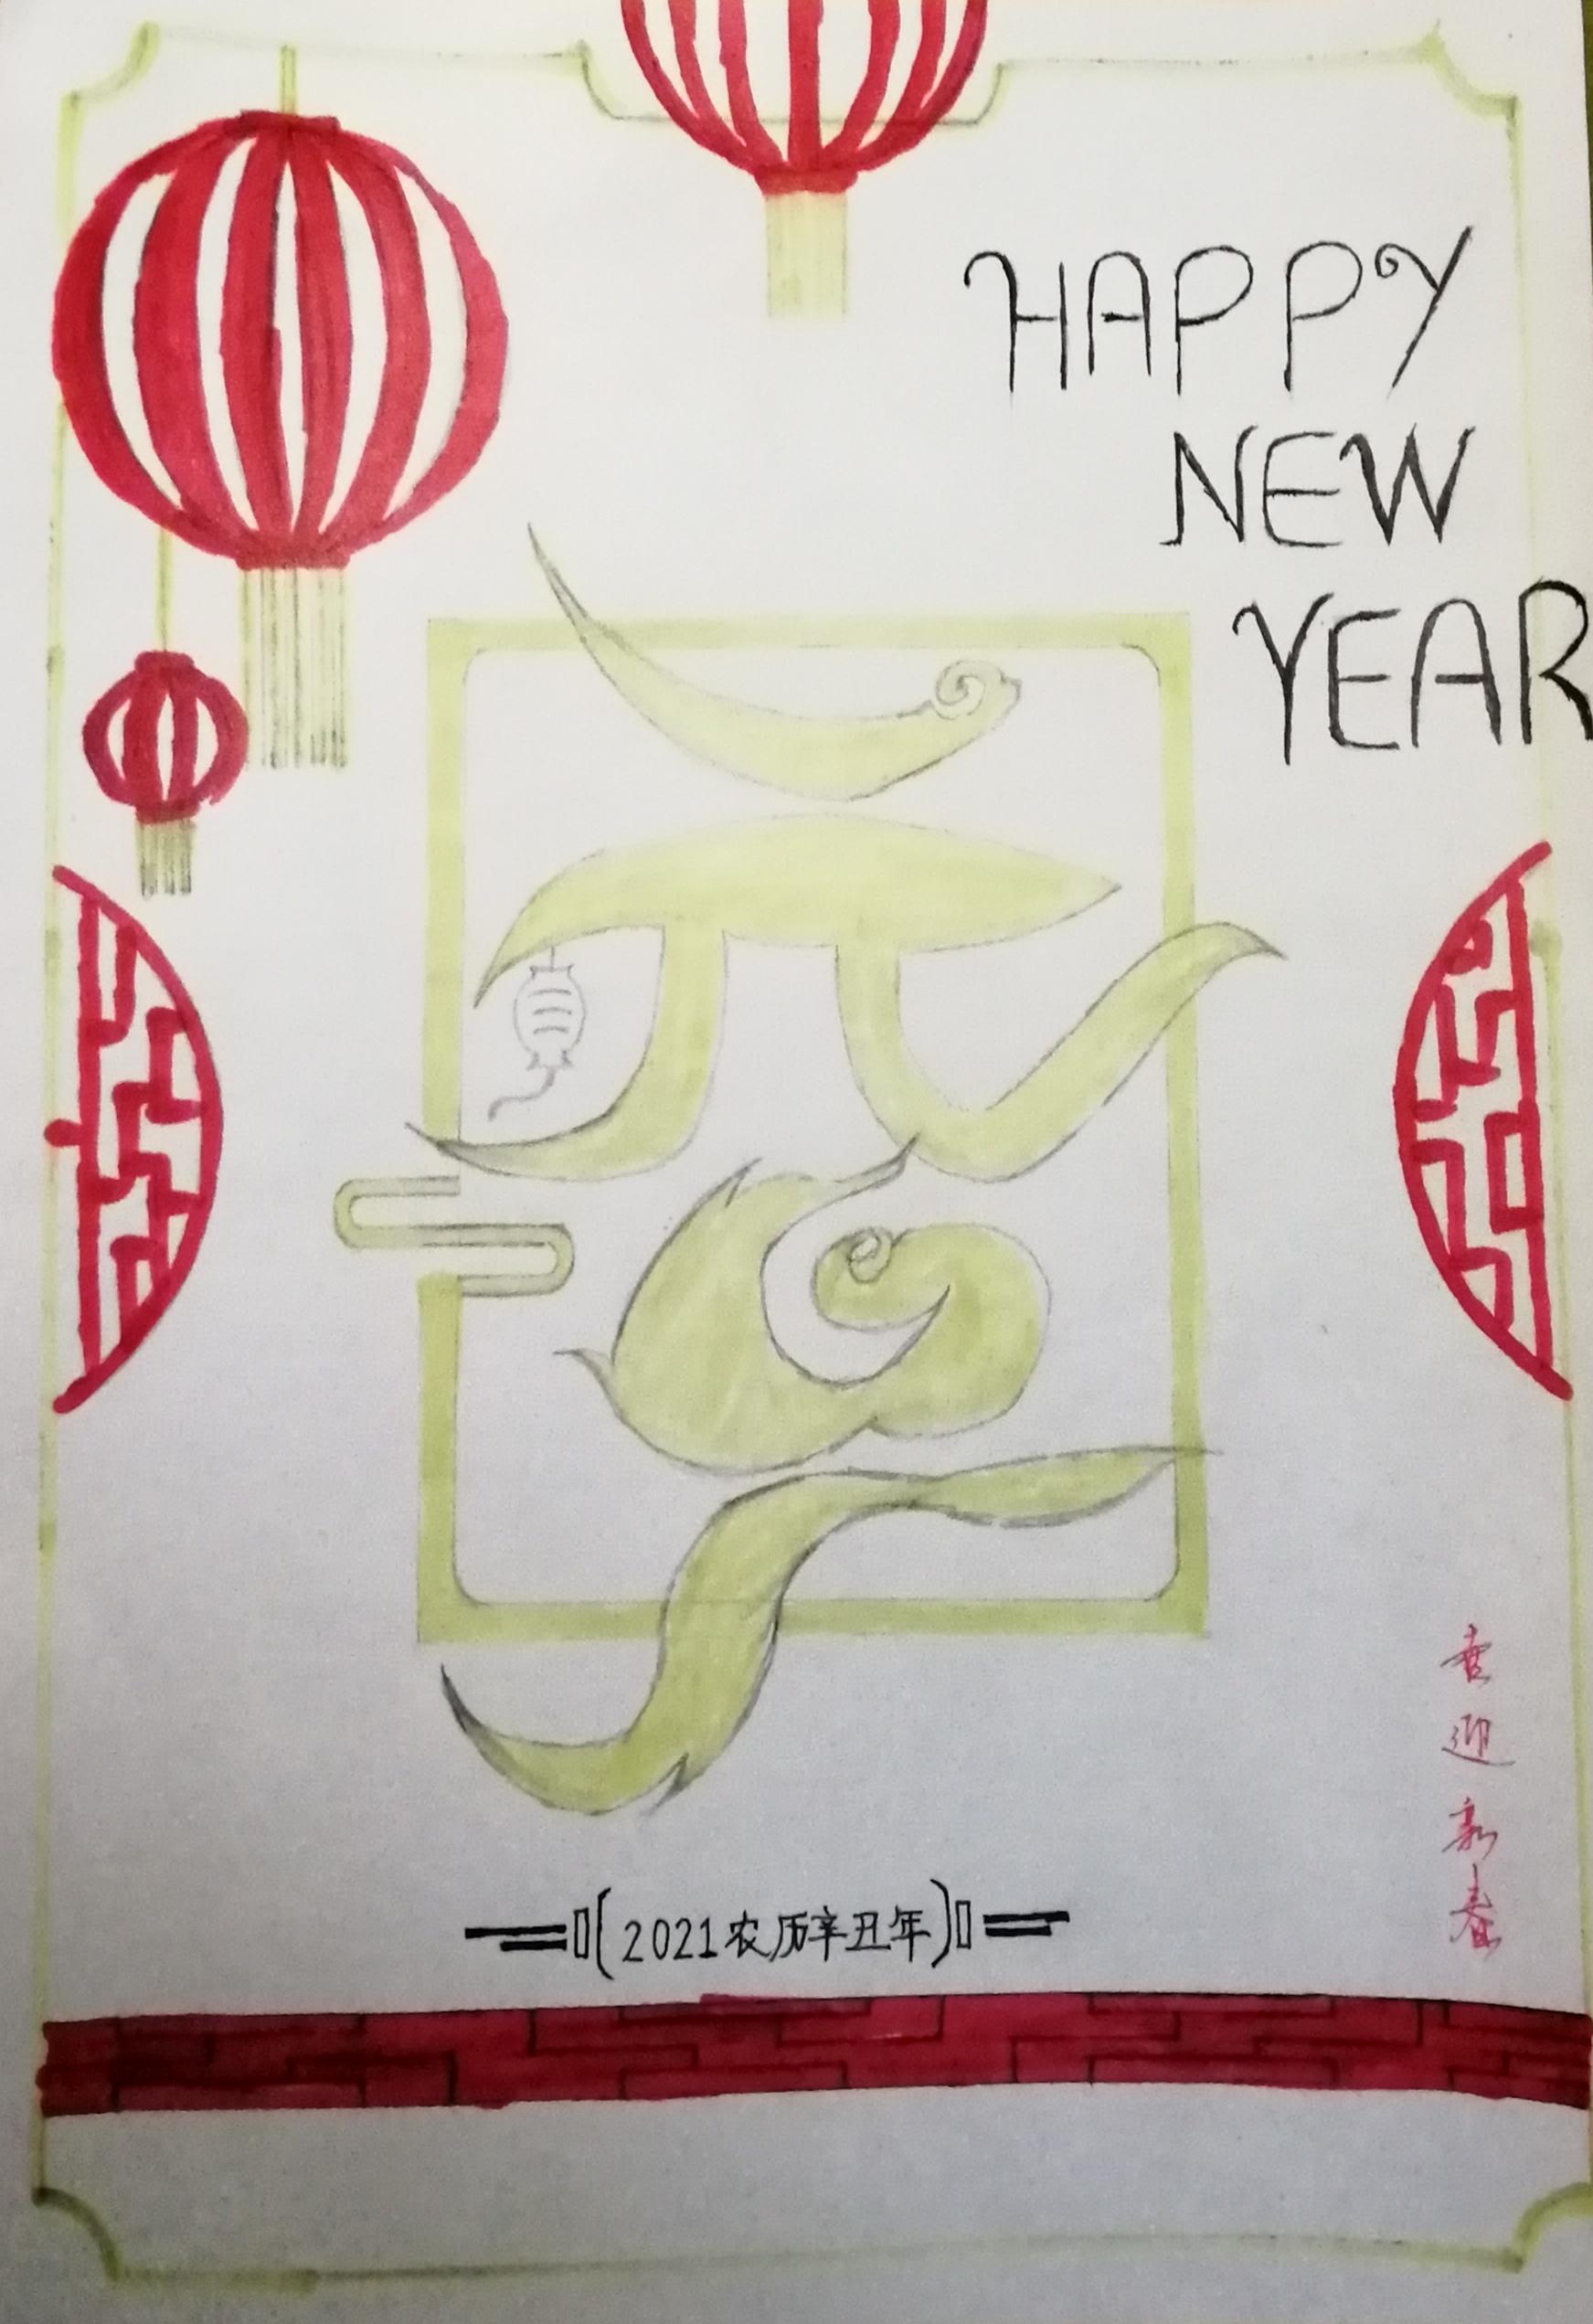 HAPPY
NEW
YEAR
元
旦
喜迎新春
(2021农历辛丑年)